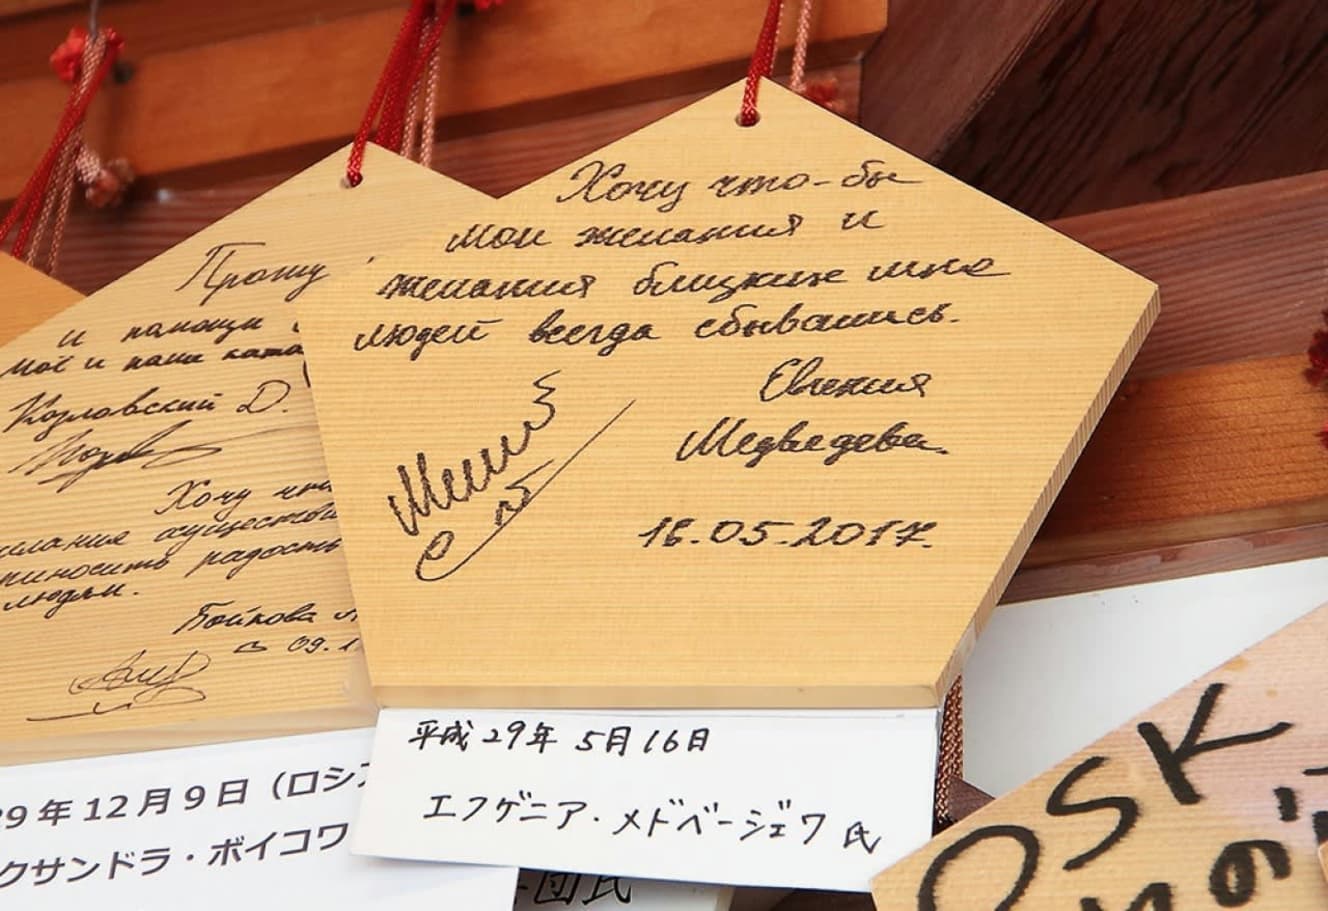 Хочу что-бы
мои желания и
желания близких мне
людей всегда сбывались.
Евгения
Медведева.
16.05.2017.
平成29年 5月16日
エフゲニア・メドベージェワ 氏
Прошу
и помощи
моё и наши ката
Козловский Д.
Хочу что
осуществ
приносить радость
людям.
Бойкова
09.1
29年12月9日（ロシア
クサンドラ・ボイコワ
団氏
OSK